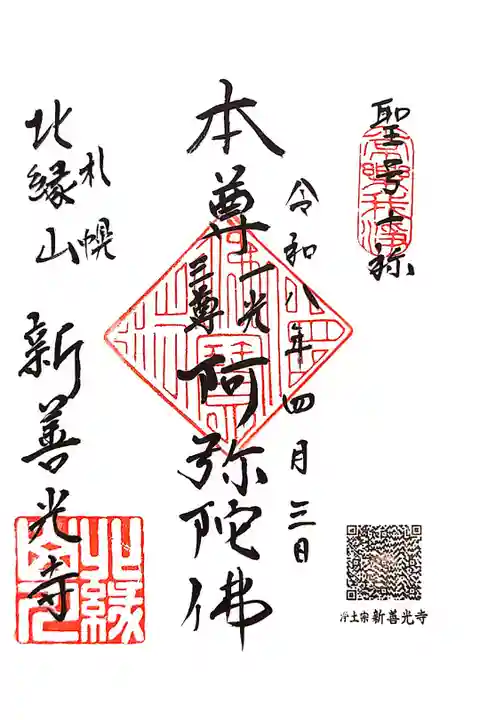 聖号十称
令和八年四月三日
本尊 一光三尊 阿弥陀佛
札幌
北縁山 新善光寺
北縁山
浄土宗 新善光寺